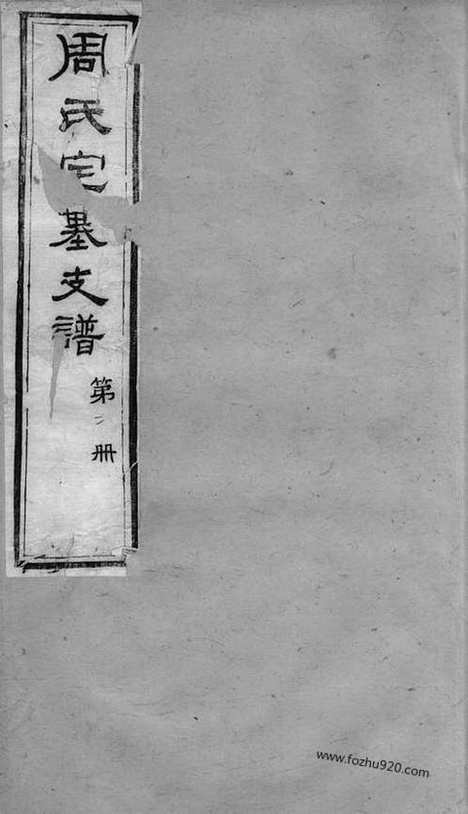 周氏宅墓支譜
第二册
www.fozhu920.com